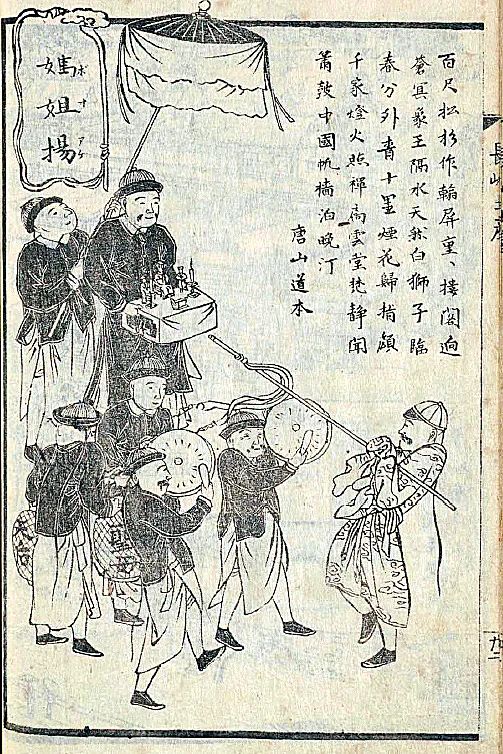 媽姐揚
ボサアゲ
百尺松杉作翰屏重、樓閣逈
蒼冥象王隔水天然白獅子臨
春分外青十里煙花歸指顧
千家燈火照禪扃雲堂靜聞
簫鼓中國帆檣泊晚汀
唐山道本
長崎土産